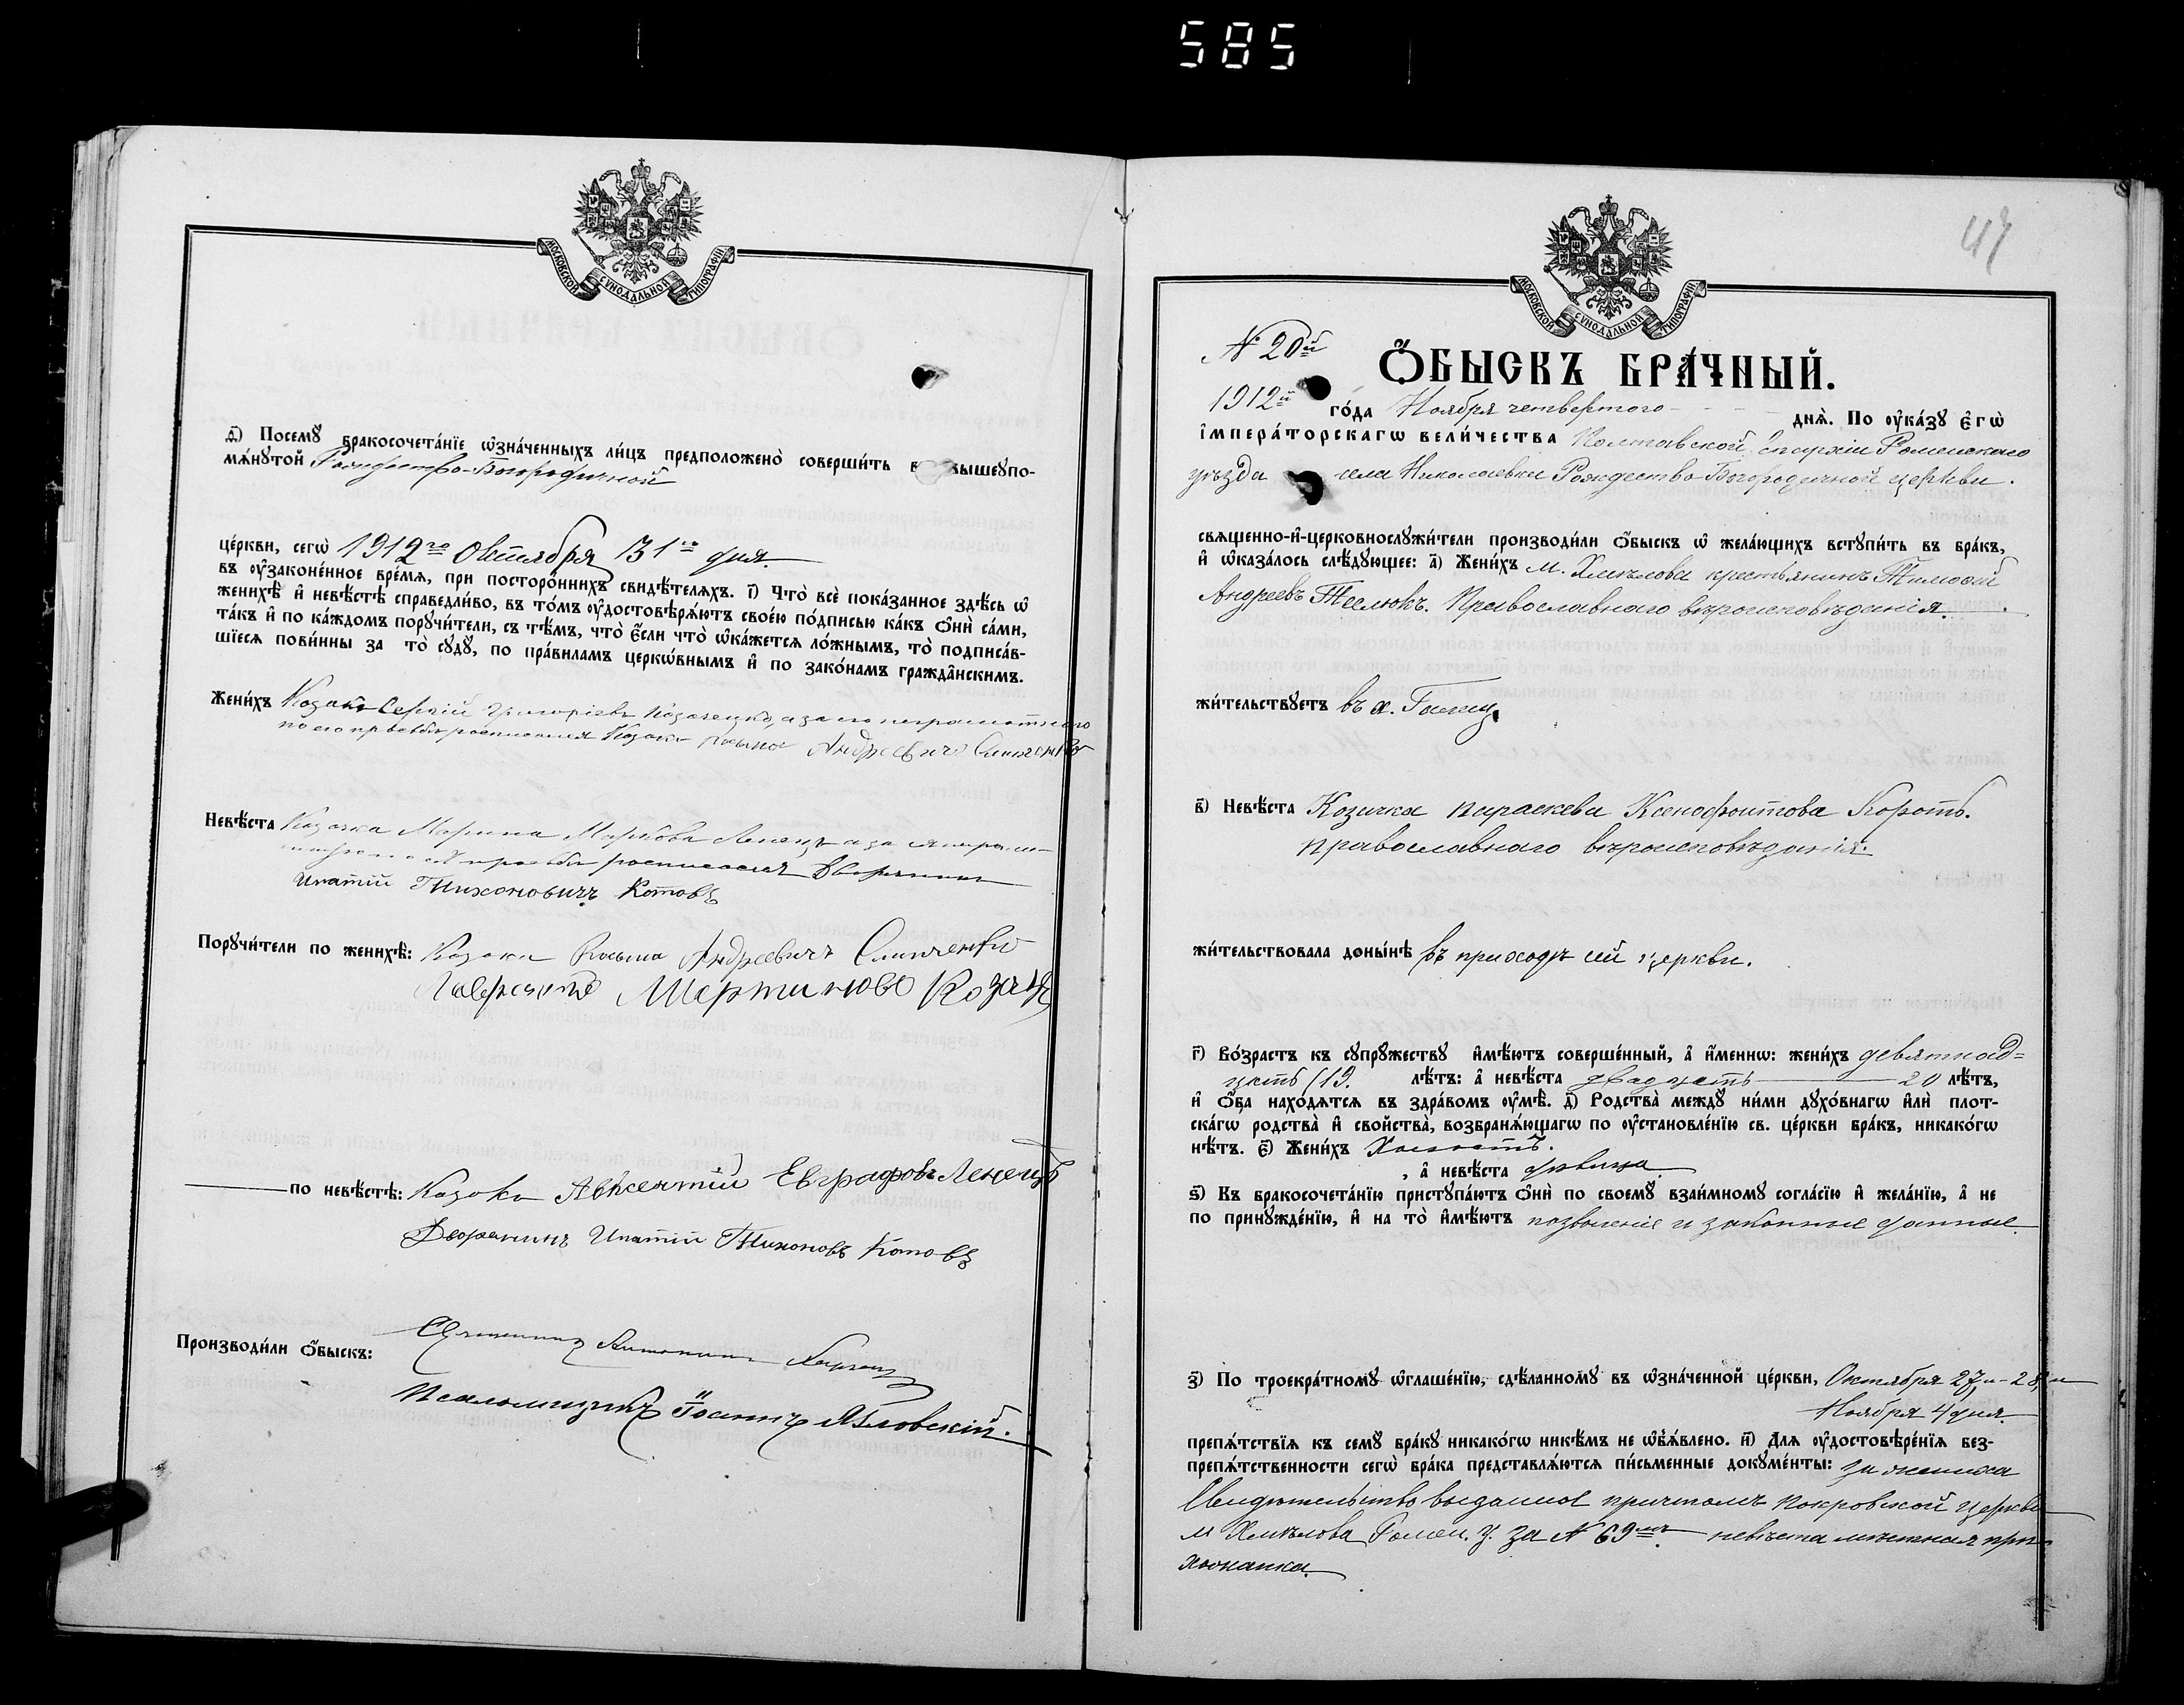 585
МОСКОВСКОЙ СѴНОДАЛЬНОЙ ТИПОГРАФІИ
д҃) Посемꙋ бракосочета́нїе ѡ҆зна́ченныхъ ли́цъ предположено̀ соверши́ть в вышеꙋпо-
мѧ́нꙋтой Рождество-Богородичной
це́ркви, сегѡ̀ 1912го Октября 31го дня.
въ ᲂу҆законе́нное вре́мѧ, при посторо́ннихъ свидѣ́телѧхъ. і҃) Что̀ всѐ пока́занное здѣ́сь ѡ҆
женихѣ̀ и҆ невѣ́стѣ справедли́во, въ то́мъ ᲂу҆достовѣрѧ́ютъ свое́ю по́дписью ка́къ ѻ҆нѝ са́ми,
та́къ и҆ по ка́ждомъ порꙋчи́тели, съ тѣ́мъ, что̀ є҆́сли что̀ ѡ҆ка́жетсѧ ло́жнымъ, то̀ подписа́в-
шїесѧ пови́нны за то̀ сꙋдꙋ̀, по пра́виламъ церкѡ́внымъ и҆ по зако́намъ гражда̑нскимъ.
Жени́хъ Козакъ Сергій Григоріевъ а за его неграмотного
по его прозьбѣ росписался Козакъ Косьма Андреевичъ Слинченко
Невѣ́ста Козачка Марина Маркова Ленецъ а за
росписался Дворянинъ
Ипатій Тихоновичъ Котовъ
Порꙋчи́тели по женихѣ̀: Козаки Косьма Андреевичъ Слинченко
Лаврентій Мартиновъ Козацъ
по невѣ́стѣ: Козаки Авксентій Евграфовъ Ленецъ
Дворянинъ Ипатій Тихоновъ Котовъ
Производи́ли ѻ҆́быскъ: Священникъ
Псаломщикъ Іоаннъ Ябловскій.
47
МОСКОВСКОЙ СѴНОДАЛЬНОЙ ТИПОГРАФІИ
N 20й
Ѻ҆́БЫСКЪ БРА́ЧНЫЙ.
1912й го́да Ноября четвертого дня̀. По ᲂу҆ка́зꙋ є҆гѡ̀
і҆мпера́торскагѡ вели́чества Полтавской Епархіи Роменскаго
уѣзда села Николаевки Рождество-Богородичной церкви.
свѧщенно-и҆-церковнослꙋжи́тели производи́ли ѻ҆́быскъ ѡ҆ жела́ющихъ встꙋпи́ть въ бра́къ,
и҆ ѡ҆каза́лось слѣ́дꙋющее: а҃) Жени́хъ м. Хмѣлова крестьянинъ Тимофей
Андреевъ Теслюкъ. Православнаго вѣроисповѣданія.
жи́тельствꙋетъ въ х.
в҃) Невѣ́ста Козачка Параскева Ксенофонтова Коротъ.
православнаго вѣроисповѣданія.
жи́тельствовала доны́нѣ въ приходѣ сей церкви.
г҃) Во́зрастъ къ сꙋпрꙋ́жествꙋ и҆мѣ́ютъ соверше́нный, а҆ и҆́меннѡ: жени́хъ девятнад=
цать (19. лѣ́тъ: а҆ невѣ́ста двадцать 20 лѣ́тъ,
и҆ ѻ҆́ба нахо́дѧтсѧ въ здра́вомъ ᲂу҆мѣ̀. д҃) Родства̀ междꙋ̀ ни́ми дꙋхо́внагѡ и҆лѝ плот-
ска́гѡ родства̀ и҆ свойства̀, возбранѧ́ющагѡ по ᲂу҆становле́нїю св. це́ркви бра́къ, никако́гѡ
нѣ́тъ. є҃) Жени́хъ Холостъ.
, а҆ невѣ́ста дѣвица.
ѕ҃) Къ бракосочета́нїю пристꙋпа́ютъ ѻ҆нѝ по своемꙋ̀ взаи́мномꙋ согла́сїю и҆ жела́нїю, а҆ не
по принꙋжде́нїю, и҆ на то̀ и҆мѣ́ютъ позволеніе и законные данные.
з҃) По троекра́тномꙋ ѡ҆глаше́нїю, сдѣ́ланномꙋ въ ѡ҆зна́ченной це́ркви, Октября 27, и 28, и
Ноября 4 дня.
препѧ́тствїѧ къ семꙋ̀ бра́кꙋ никако́гѡ никѣ́мъ не ѡ҆б̾ѧ́влено. и҃) Для ᲂу҆достовѣре́нїѧ без-
препѧ́тственности сегѡ̀ бра́ка представлѧ́ютсѧ пи́сьменные докꙋме́нты: за жениха
Свидѣтельство выданное причтомъ Покровской церкви
м Хмѣлова Ромен. у. за N 69мъ невѣста мѣстная при-
хожанка.